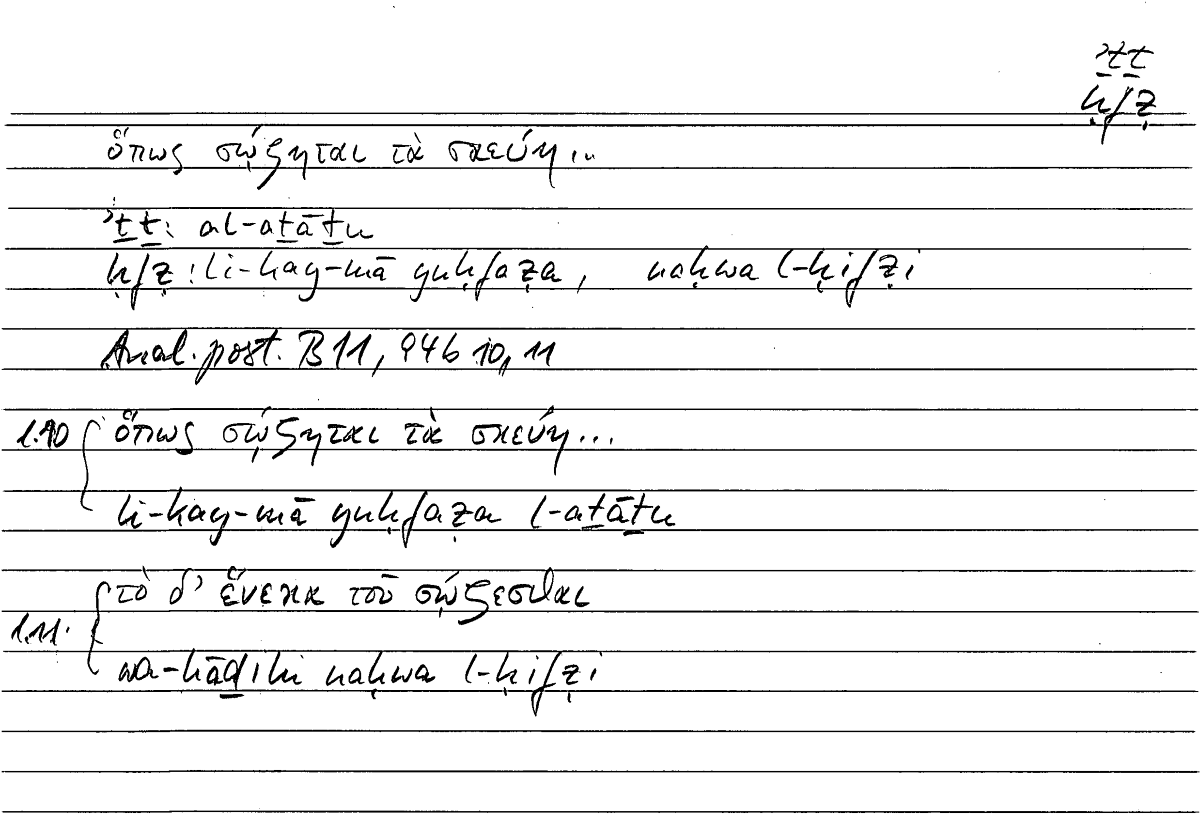 ʾṯṯ
ḥfẓ
ὅπως σῴζηται τὰ σκεύη...
ʾṯṯ: al-aṯāṯu
ḥfẓ: li-kay-mā yuḥfaẓa, naḥwa l-ḥifẓi
Anal. post. B 11, 94b 10, 11
l.10 ὅπως σῴζηται τὰ σκεύη...
li-kay-mā yuḥfaẓa l-aṯāṯu
τὸ δ' ἕνεκα τοῦ σῴζεσθαι
l.11.
wa-hāḏihi naḥwa l-ḥifẓi